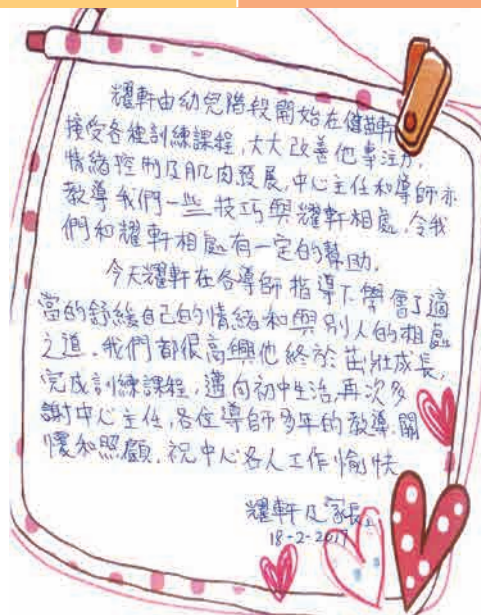 耀軒由幼兒階段開始在健苗軒
接受各種訓練課程,大大改善他專注力,
情緒控制及肌肉發展,中心主任和導師亦
教導我們一些技巧與耀軒相處,令我
們和耀軒相處有一定的幫助.
今天耀軒在各導師指導下學會了適
當的舒緩自己的情緒和與別人的相處
之道.我們都很高興他終於茁壯成長,
完成訓練課程,邁向初中生活,再次多
謝中心主任,各位導師多年的教導,關
懷和照顧.祝中心各人工作愉快
耀軒及家長上
18-2-2017